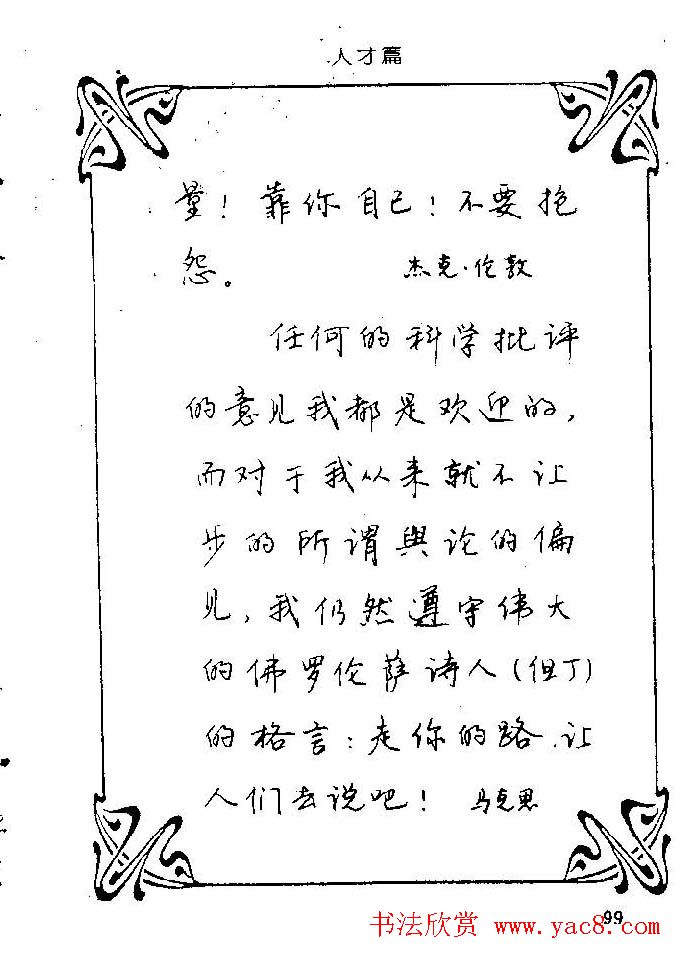 人才篇
量！靠你自己！不要抱
怨。 杰克·伦敦
任何的科学批评
的意见我都是欢迎的，
而对于我从来就不让
步的所谓舆论的偏
见，我仍然遵守伟大
的佛罗伦萨诗人（但丁）
的格言：走你的路，让
人们去说吧！ 马克思
99
书法欣赏 www.yac8.com